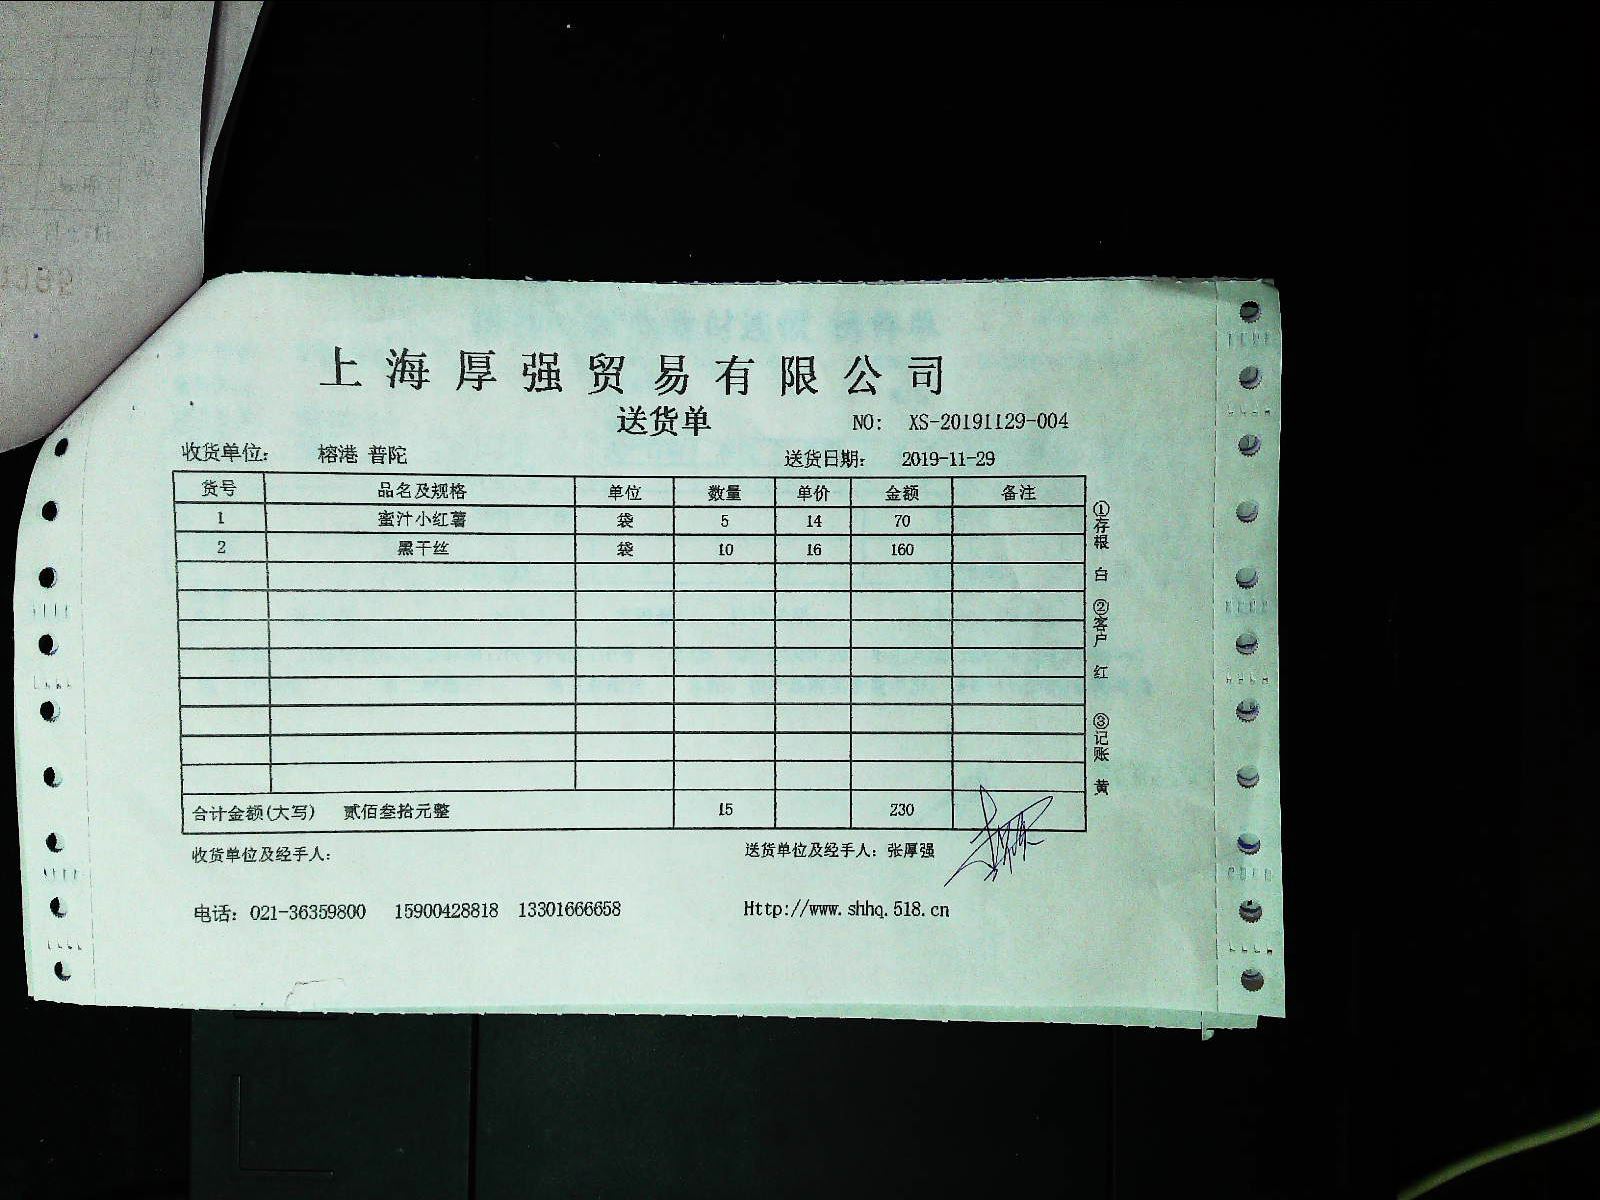 上海厚强贸易有限公司
送货单 NO: XS-20191129-004
收货单位: 榕港 普陀 送货日期: 2019-11-29
货号 品名及规格 单位 数量 单价 金额 备注
1 蜜汁小红薯 袋 5 14 70
2 黑干丝 袋 10 16 160
合计金额(大写) 贰佰叁拾元整 15 230
收货单位及经手人: 送货单位及经手人: 张厚强
电话: 021-36359800 15900428818 13301666658 Http://www.shhq.518.cn
①存根 白 ②客户 红 ③记账 黄